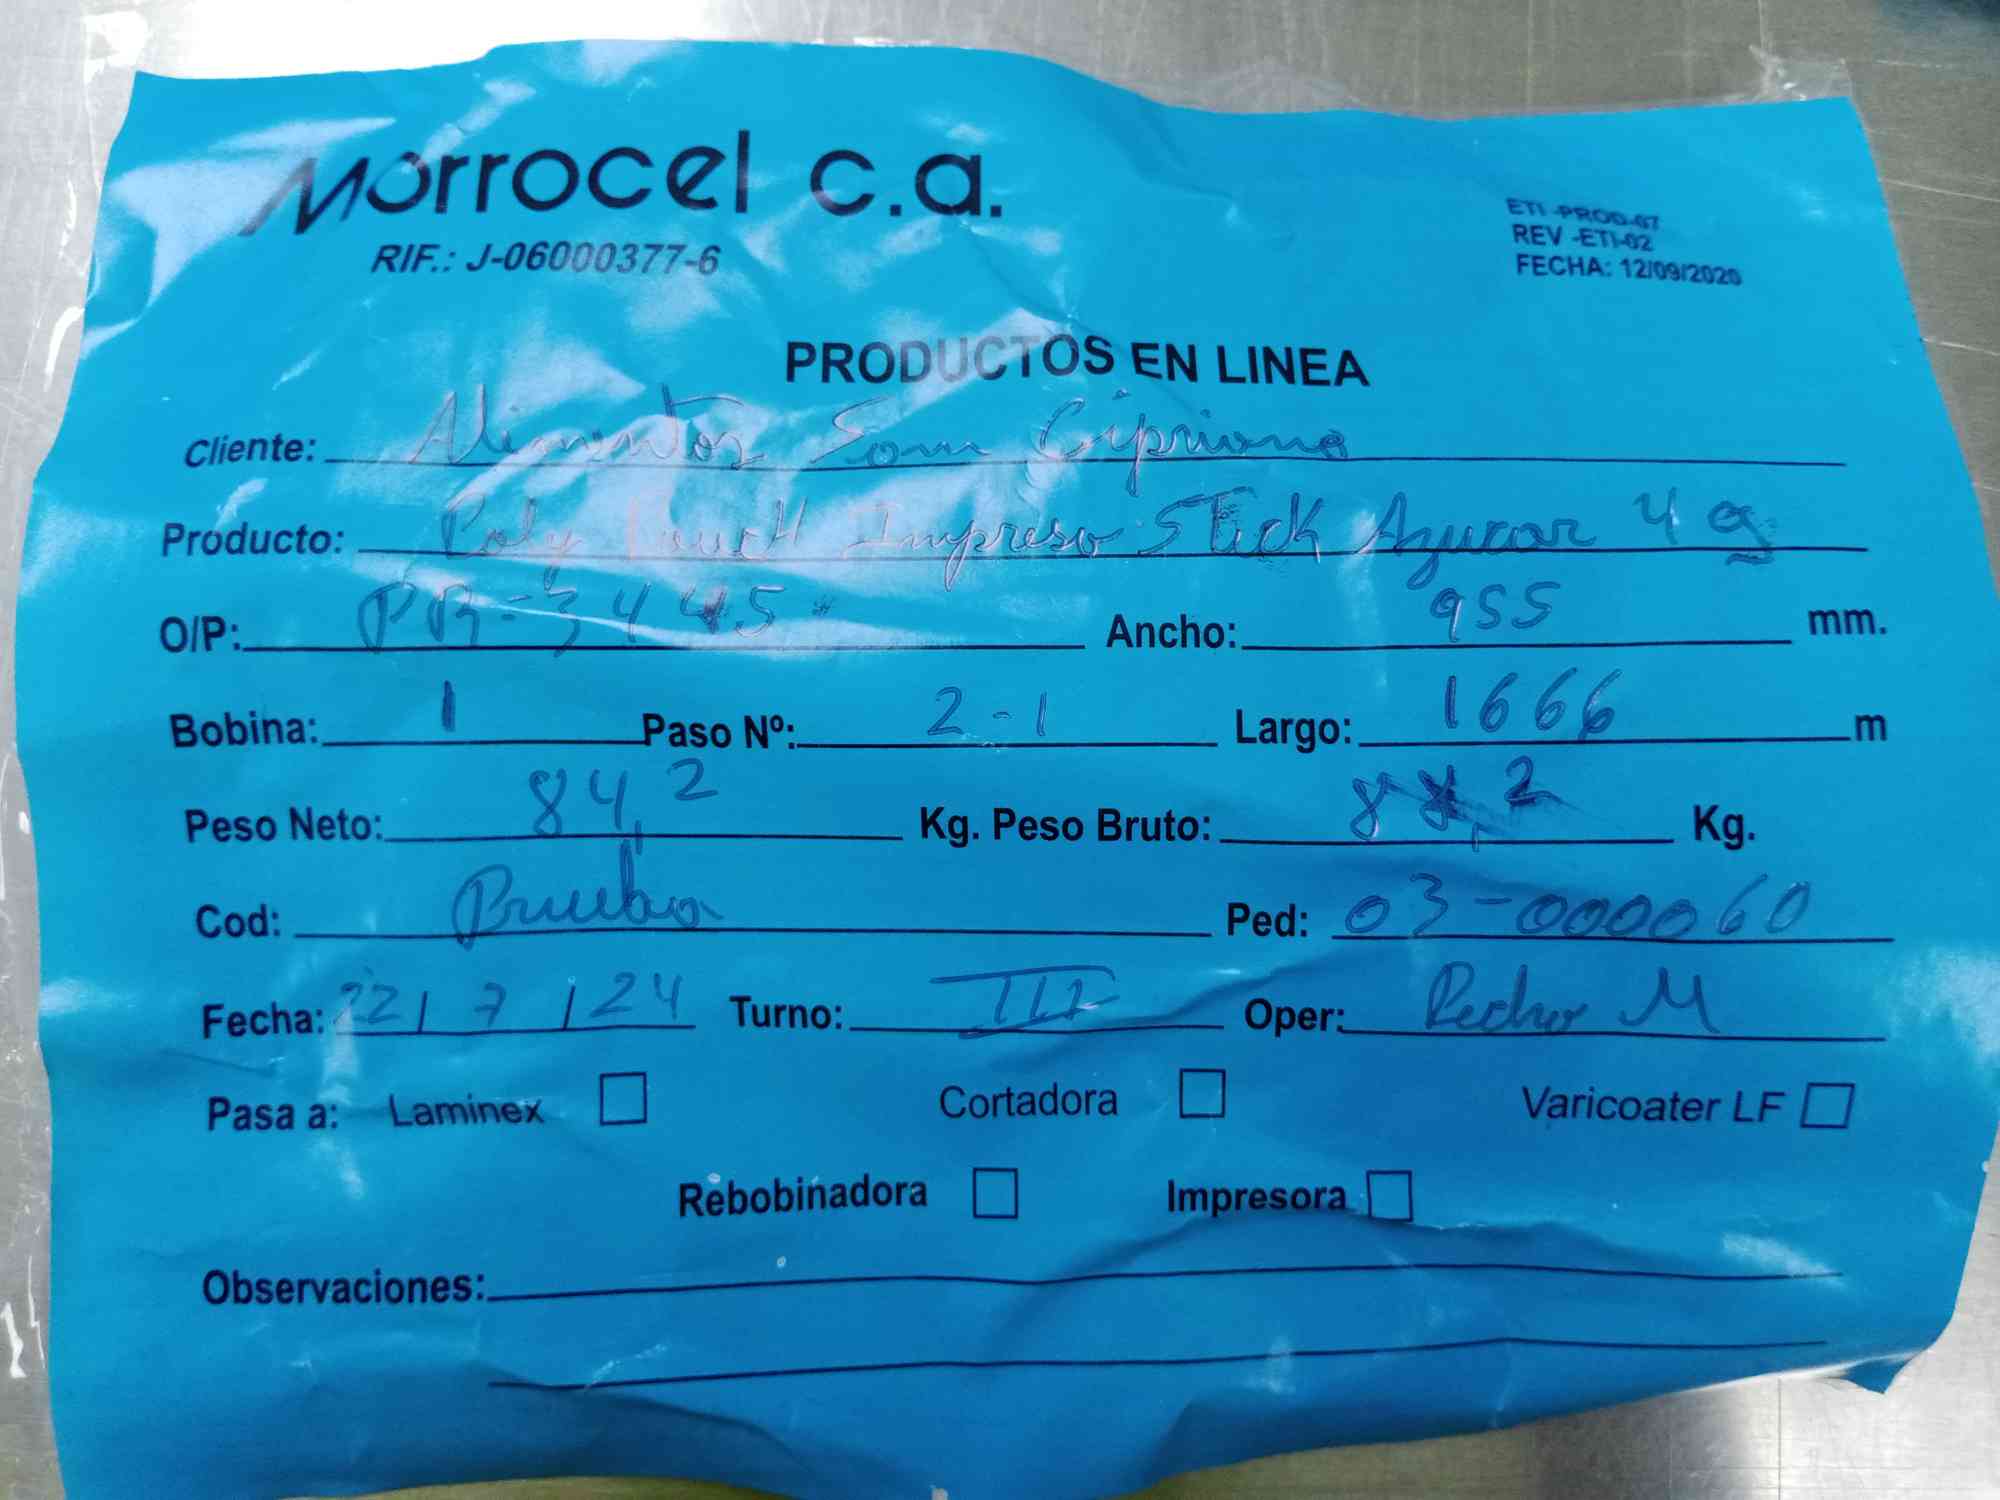 Morrocel c.a.
RIF.: J-06000377-6
ETI -PROD-07
REV -ETI-02
FECHA: 12/09/2020
PRODUCTOS EN LINEA
Cliente: Alimentos Som Cipriano
Producto: Poly Pouch Impreso Stick Azucar 4 g
O/P: PR-3445 Ancho: 955 mm.
Bobina: 1 Paso Nº: 2-1 Largo: 1666 m
Peso Neto: 84,2 Kg. Peso Bruto: 88,2 Kg.
Cod: Prueba Ped: 03-000060
Fecha: 22/7/24 Turno: III Oper: Pedro M
Pasa a: Laminex Cortadora Varicoater LF
Rebobinadora Impresora
Observaciones: